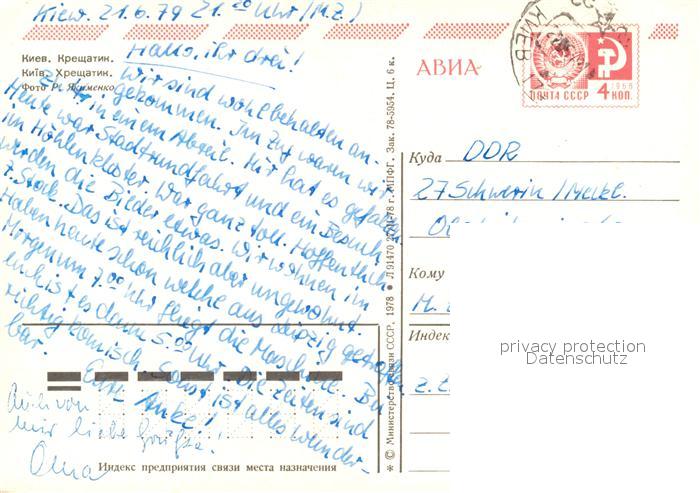 Kiew. 21.6.79 21.00 Uhr (M.Z.)
Hallo, ihr drei!
Киев. Крещатик.
Київ. Хрещатик.
Фото Р. Якименко
Wir sind wohlbehalten an-
gekommen. Im Zug waren wir
zu 4 in einem Abteil. Mir hat es gefallen.
Heute war Stadtrundfahrt und ein Besuch
im Höhlenkloster. War ganz toll. Hoffentlich
werden die Bilder etwas. Wir wohnen im
7. Stock. Das ist reichlich aber ungewohnt.
Haben heute schon welche aus Leipzig getroffen.
Morgen um 7.00 Uhr fliegt die Maschine. Bei
euch ist es dann 5.00 Uhr. Die Zeiten sind
richtig komisch. Sonst ist alles wunder-
bar.
Eure Anke!
Auch von
mir liebe Grüße!
Oma
Индекс предприятия связи места назначения
© Министерство связи СССР. 1978 Л 91470 27/II-78 г. МПФГ. Зак. 78-5954. Ц. 6 к.
АВИА
КИЕВ
ПОЧТА СССР
1966
4 КОП.
Куда DDR
27 Schwerin / Meckl.
Кому
M.
Индекс
z. Z.
privacy protection
Datenschutz